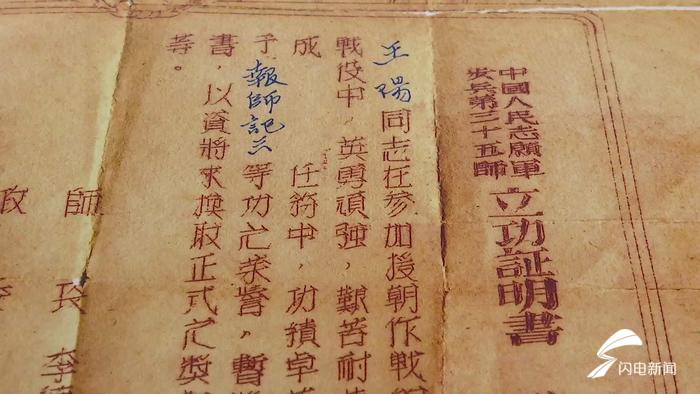 中國人民志願軍
步兵第三十五師
立功証明書
王陽同志在参加援朝作戰
戰役中，英勇頑強，艱苦耐
成 任務中，功績卓
報師記三等功之荣誉，暫
書，以資將來换取正式之獎
等。
師 長 李
政
闪电新闻